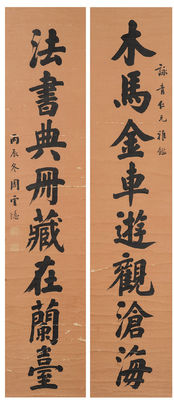 木馬金車遊觀滄海
詠青仁兄雅鑑
法書典冊藏在蘭臺
丙辰冬周雲